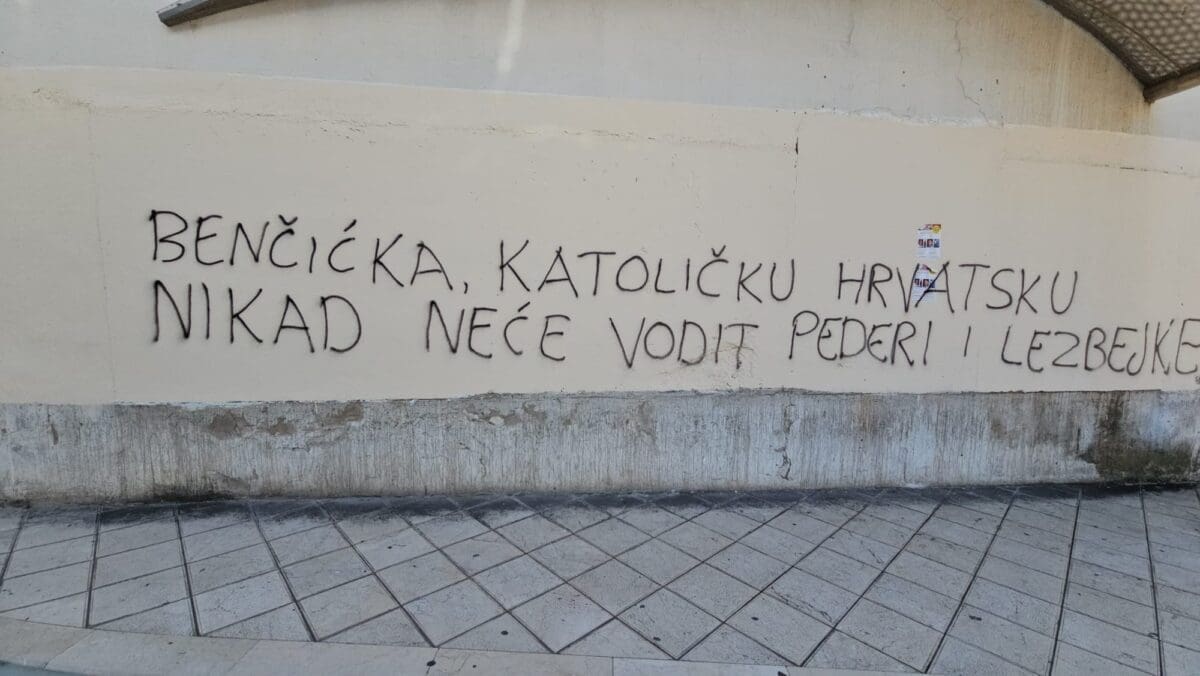 BENČIĆKA, KATOLIČKU HRVATSKU
NIKAD NEĆE VODIT PEDERI I LEZBEJKE